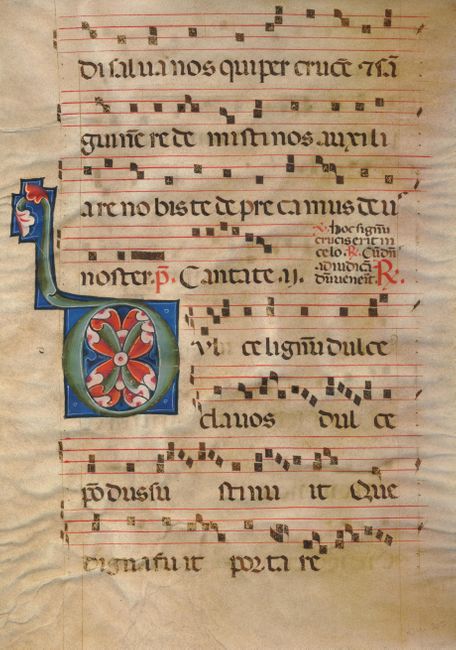 di salua nos qui per crucē ⁊ sā
guinē re de misti nos auxili
are no bis te de pre camus de u
noster. p̄. Cantate. ij.
℣. hoc signū
crucis erit in
celo. ℟. Cū dn̄
ad iudicā
dū uenerit. ℟.
Dul ce lignū dulce
clauos dul ce
pōdus su stinu it Que
digna fu it porta re